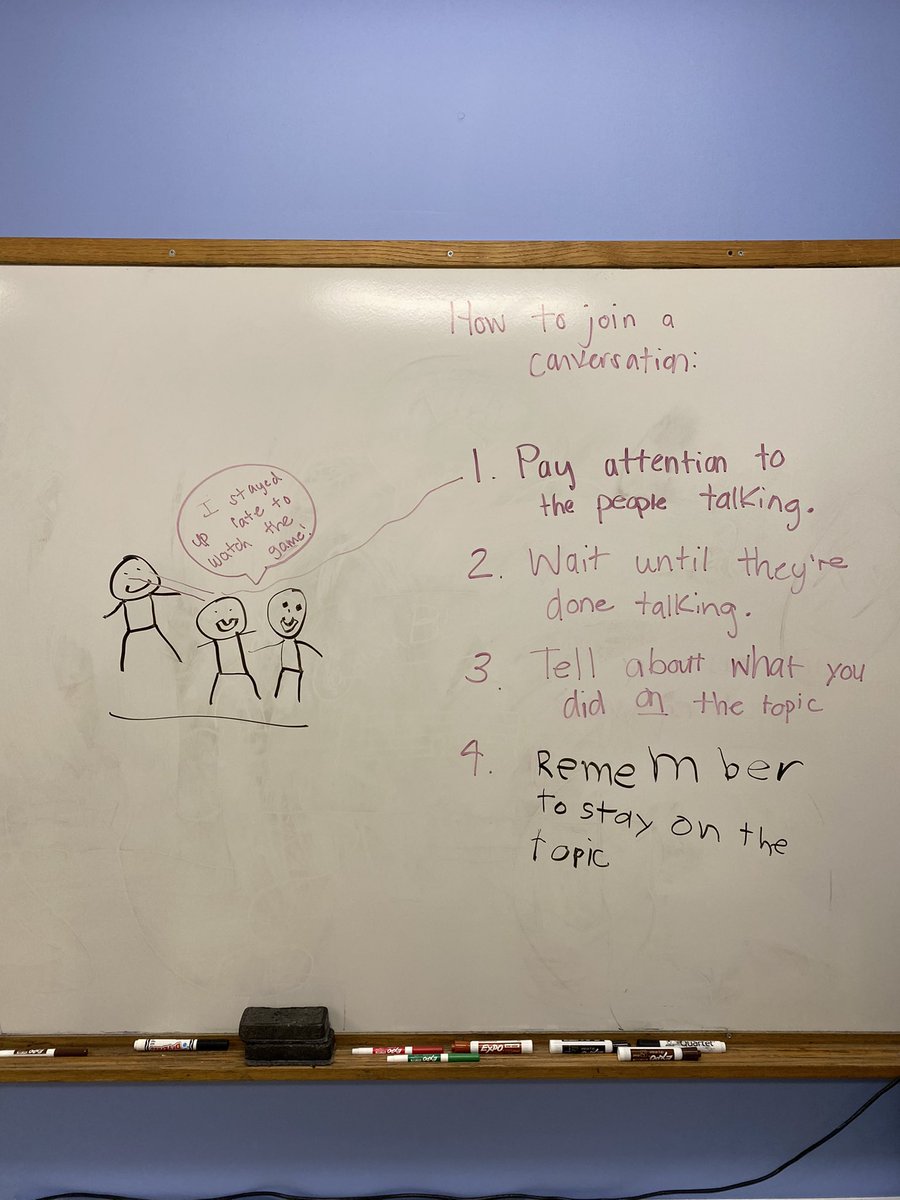 How to join a
conversation:
I stayed
up late to
watch the
game!
1. Pay attention to
the people talking.
2. Wait until they're
done talking.
3. Tell about what you
did on the topic
4. Remember
to stay on the
topic
EXPO
Quartet